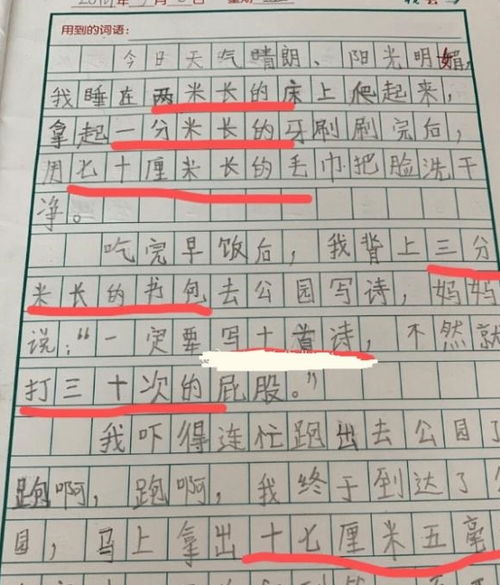 用到的词语：
今日天气晴朗、阳光明媚，
我睡在两米长的床上爬起来，
拿起一分米长的牙刷刷完后，
用七十厘米长的毛巾把脸洗干
净。
吃完早饭后，我背上三分
米长的书包去公园写诗，妈妈
说：“一定要写十首诗，不然就
打三十次的屁股。”
我吓得连忙跑出去公园了
跑啊，跑啊，我终于到达了公
园，马上拿出十七厘米五毫